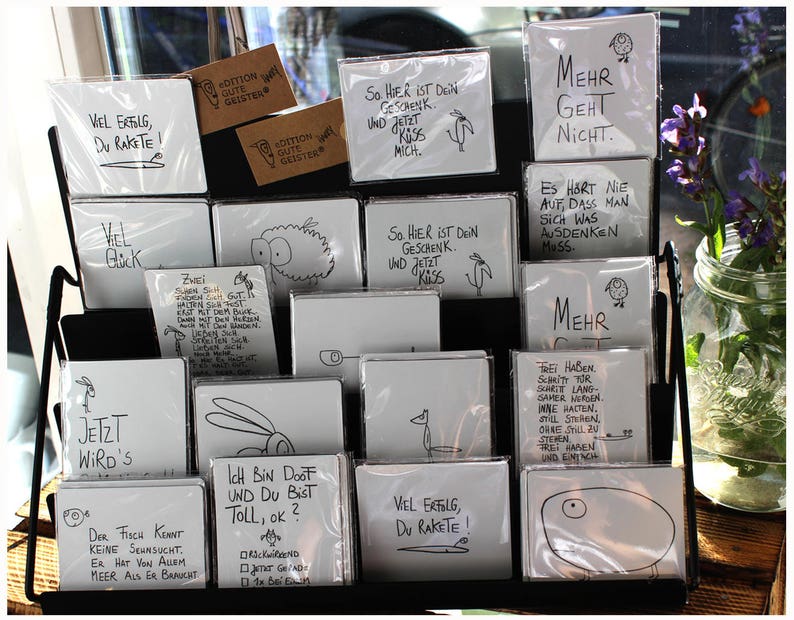 VIEL ERFOLG,
DU RAKETE!
EDITION
GUTE
GEISTER®
EDITION
GUTE
GEISTER®
SO. HIER IST DEIN
GESCHENK.
UND JETZT
KÜSS
MICH.
MEHR
GEHT
NICHT.
VIEL
GLÜCK
SO. HIER IST DEIN
GESCHENK.
UND JETZT
KÜSS
ES HÖRT NIE
AUF, DASS MAN
SICH WAS
AUSDENKEN
MUSS.
ZWEI
SEHEN SICH.
FINDEN SICH GUT.
HALTEN SICH FEST.
ERST MIT DEM BLICK.
DANN MIT DEN HERZEN.
AUCH MIT DEN HÄNDEN.
LIEBEN SICH.
STREITEN SICH.
LIEBEN SICH.
NOCH MEHR.
MEHR
JETZT
WIRD'S
FREI HABEN.
SCHRITT FÜR
SCHRITT LANG-
SAMER WERDEN.
INNE HALTEN.
STILL STEHEN,
OHNE STILL ZU
STEHEN.
FREI HABEN
UND EINFACH
DER FISCH KENNT
KEINE SEHNSUCHT.
ER HAT VON ALLEM
MEER ALS ER BRAUCHT.
ICH BIN DOOF
UND DU BIST
TOLL, OK?
RÜCKWIRKEND
JETZT GERADE
1X BEI EINEM
VIEL ERFOLG,
DU RAKETE!